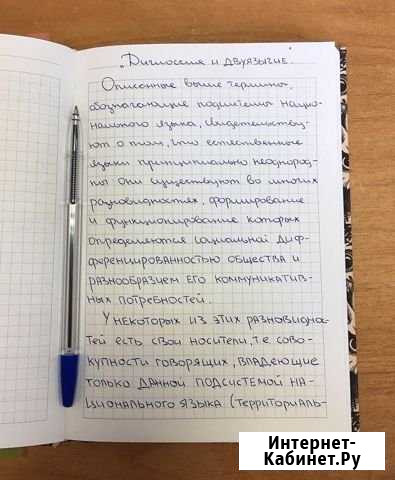 Диглоссия и двуязычие.
Описанные выше термины,
обозначающие подсистемы нацио-
нального языка, свидетельству-
ют о том, что естественные
языки принципиально неоднород-
ны: они существуют во многих
разновидностях, формирование
и функционирование которых
определяются социальной диф-
ференцированностью общества и
разнообразием его коммуникатив-
ных потребностей.
У некоторых из этих разновиднос-
тей есть свои носители, т.е. сово-
купности говорящих, владеющие
только данной подсистемой на-
ционального языка (территориаль-
Интернет-
Кабинет.Ру